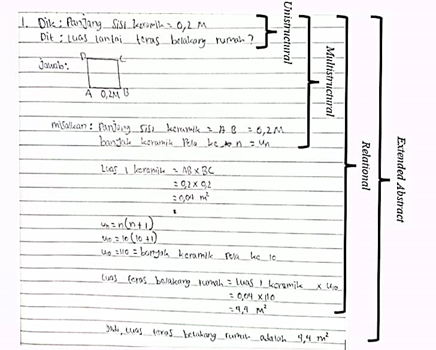 1. Dik : Panjang sisi keramik = 0,2 M
Dit : Luas lantai teras belakang rumah ?
Jawab :
D C
A 0,2M B
misalkan : Panjang sisi keramik = AB = 0,2 M
banyak keramik Pola ke n = Un
Luas 1 keramik = AB x BC
= 0,2 x 0,2
= 0,04 m²
un = n(n+1)
u10 = 10(10+1)
u10 = 110 = banyak keramik Pola ke 10
Luas teras belakang rumah = Luas 1 keramik x U10
= 0,04 x 110
= 4,4 M²
Jadi, Luas teras belakang rumah adalah 4,4 m²
Unistructural
Multistructural
Relational
Extended Abstract